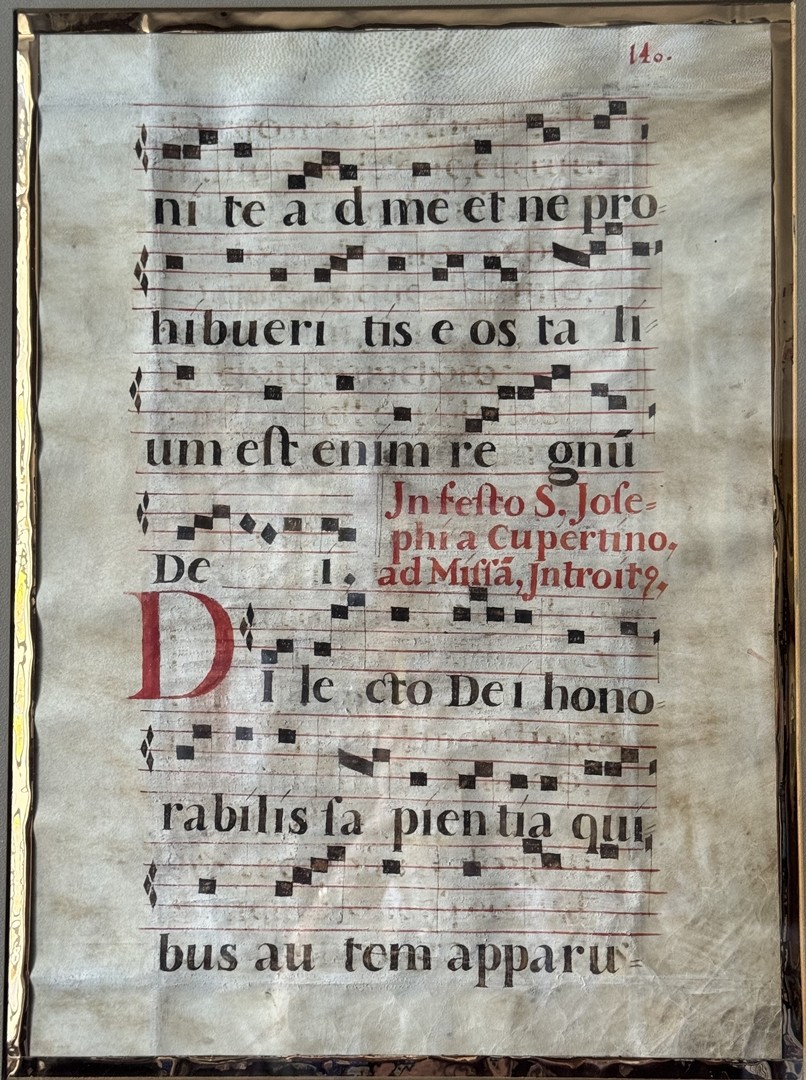 140.
ni te a d me et ne pro=
hibueri tis e os ta li=
um eſt enim re gnū
De i.
Jn feſto S. Joſe=
phi a Cupertino,
ad Miſſā, Jntroit9,
DI le cto Dei hono=
rabilis ſa pientia qui,
bus au tem apparu=